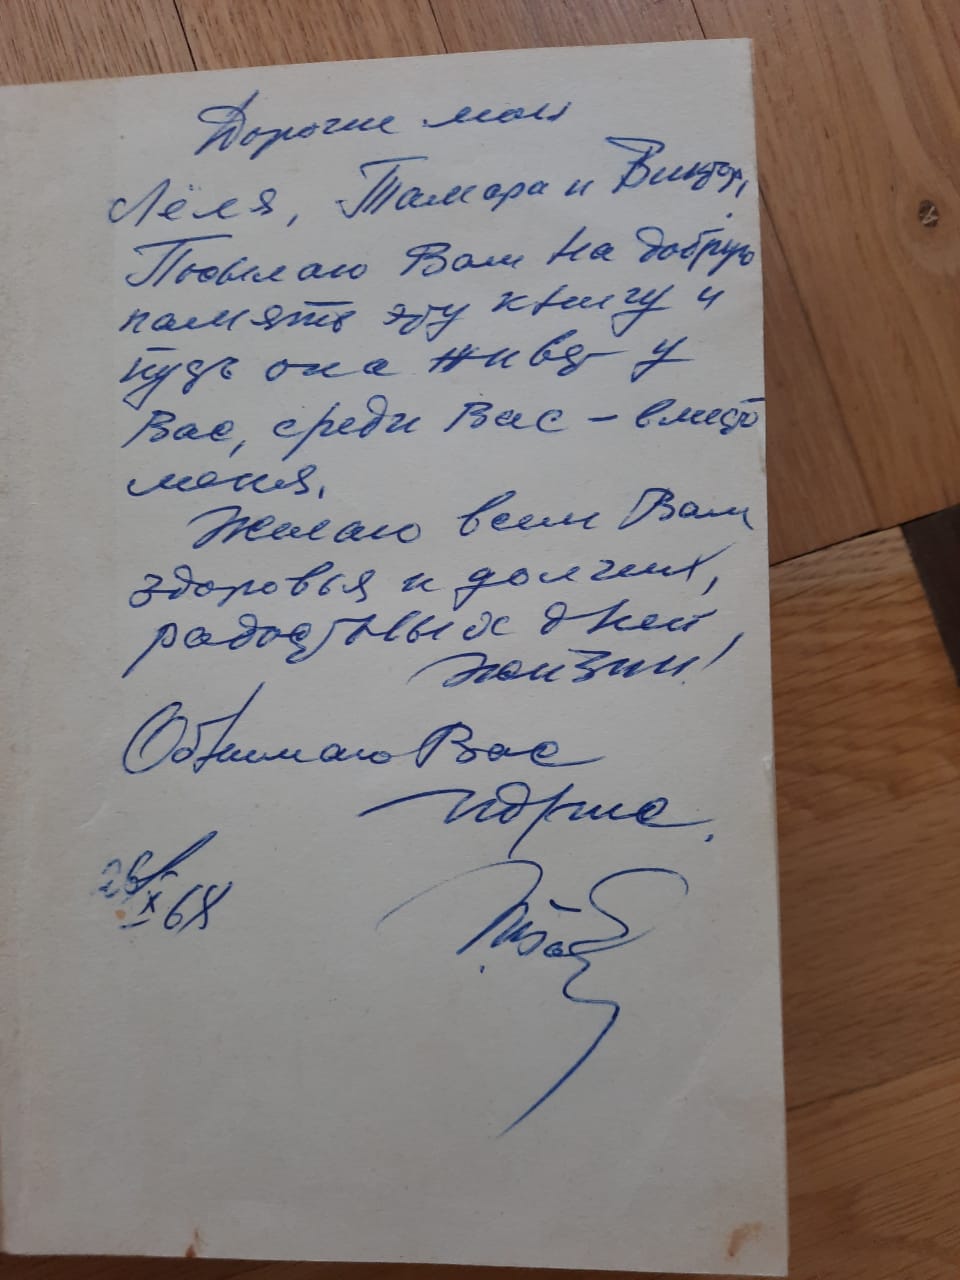 Дорогие мои
Лёля, Тамара и Виктор,
Посылаю Вам на добрую
память эту книгу и
пусть она живет у
Вас, среди Вас – вместо
меня.
Желаю всем Вам
здоровья и долгих,
радостных дней
жизни!
Обнимаю Вас
Идрис.
26/X 68